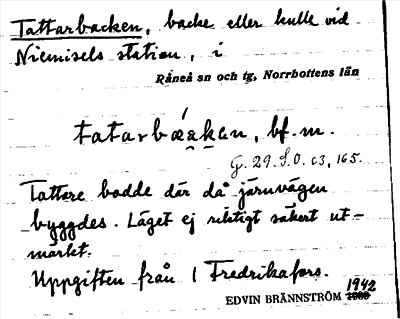 Tattarbacken, backe eller kulle vid
Niemisels station, i
Råneå sn och tg, Norrbottens län
tatarbákan, bf. m.
G. 29. S.O. c3, 165.
Tattare bodde där då järnvägen
byggdes. Läget ej riktigt säkert ut-
märkt.
Uppgiften från 1 Fredrikafors.
1942
EDVIN BRÄNNSTRÖM